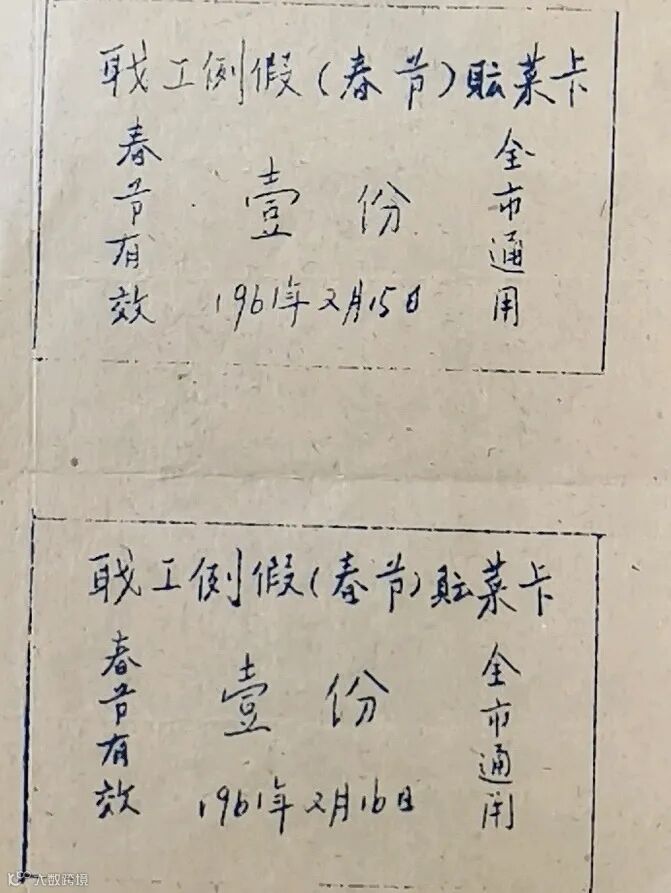 耺工例假(春节)賍菜卡
春节有效
壹 份
全市通用
1961年2月15日
耺工例假(春节)賍菜卡
春节有效
壹 份
全市通用
1961年2月16日
大数跨境